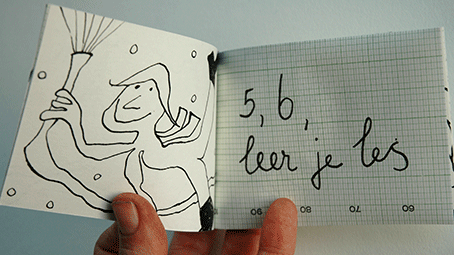 5, 6,
leer je les
90 80 70 60